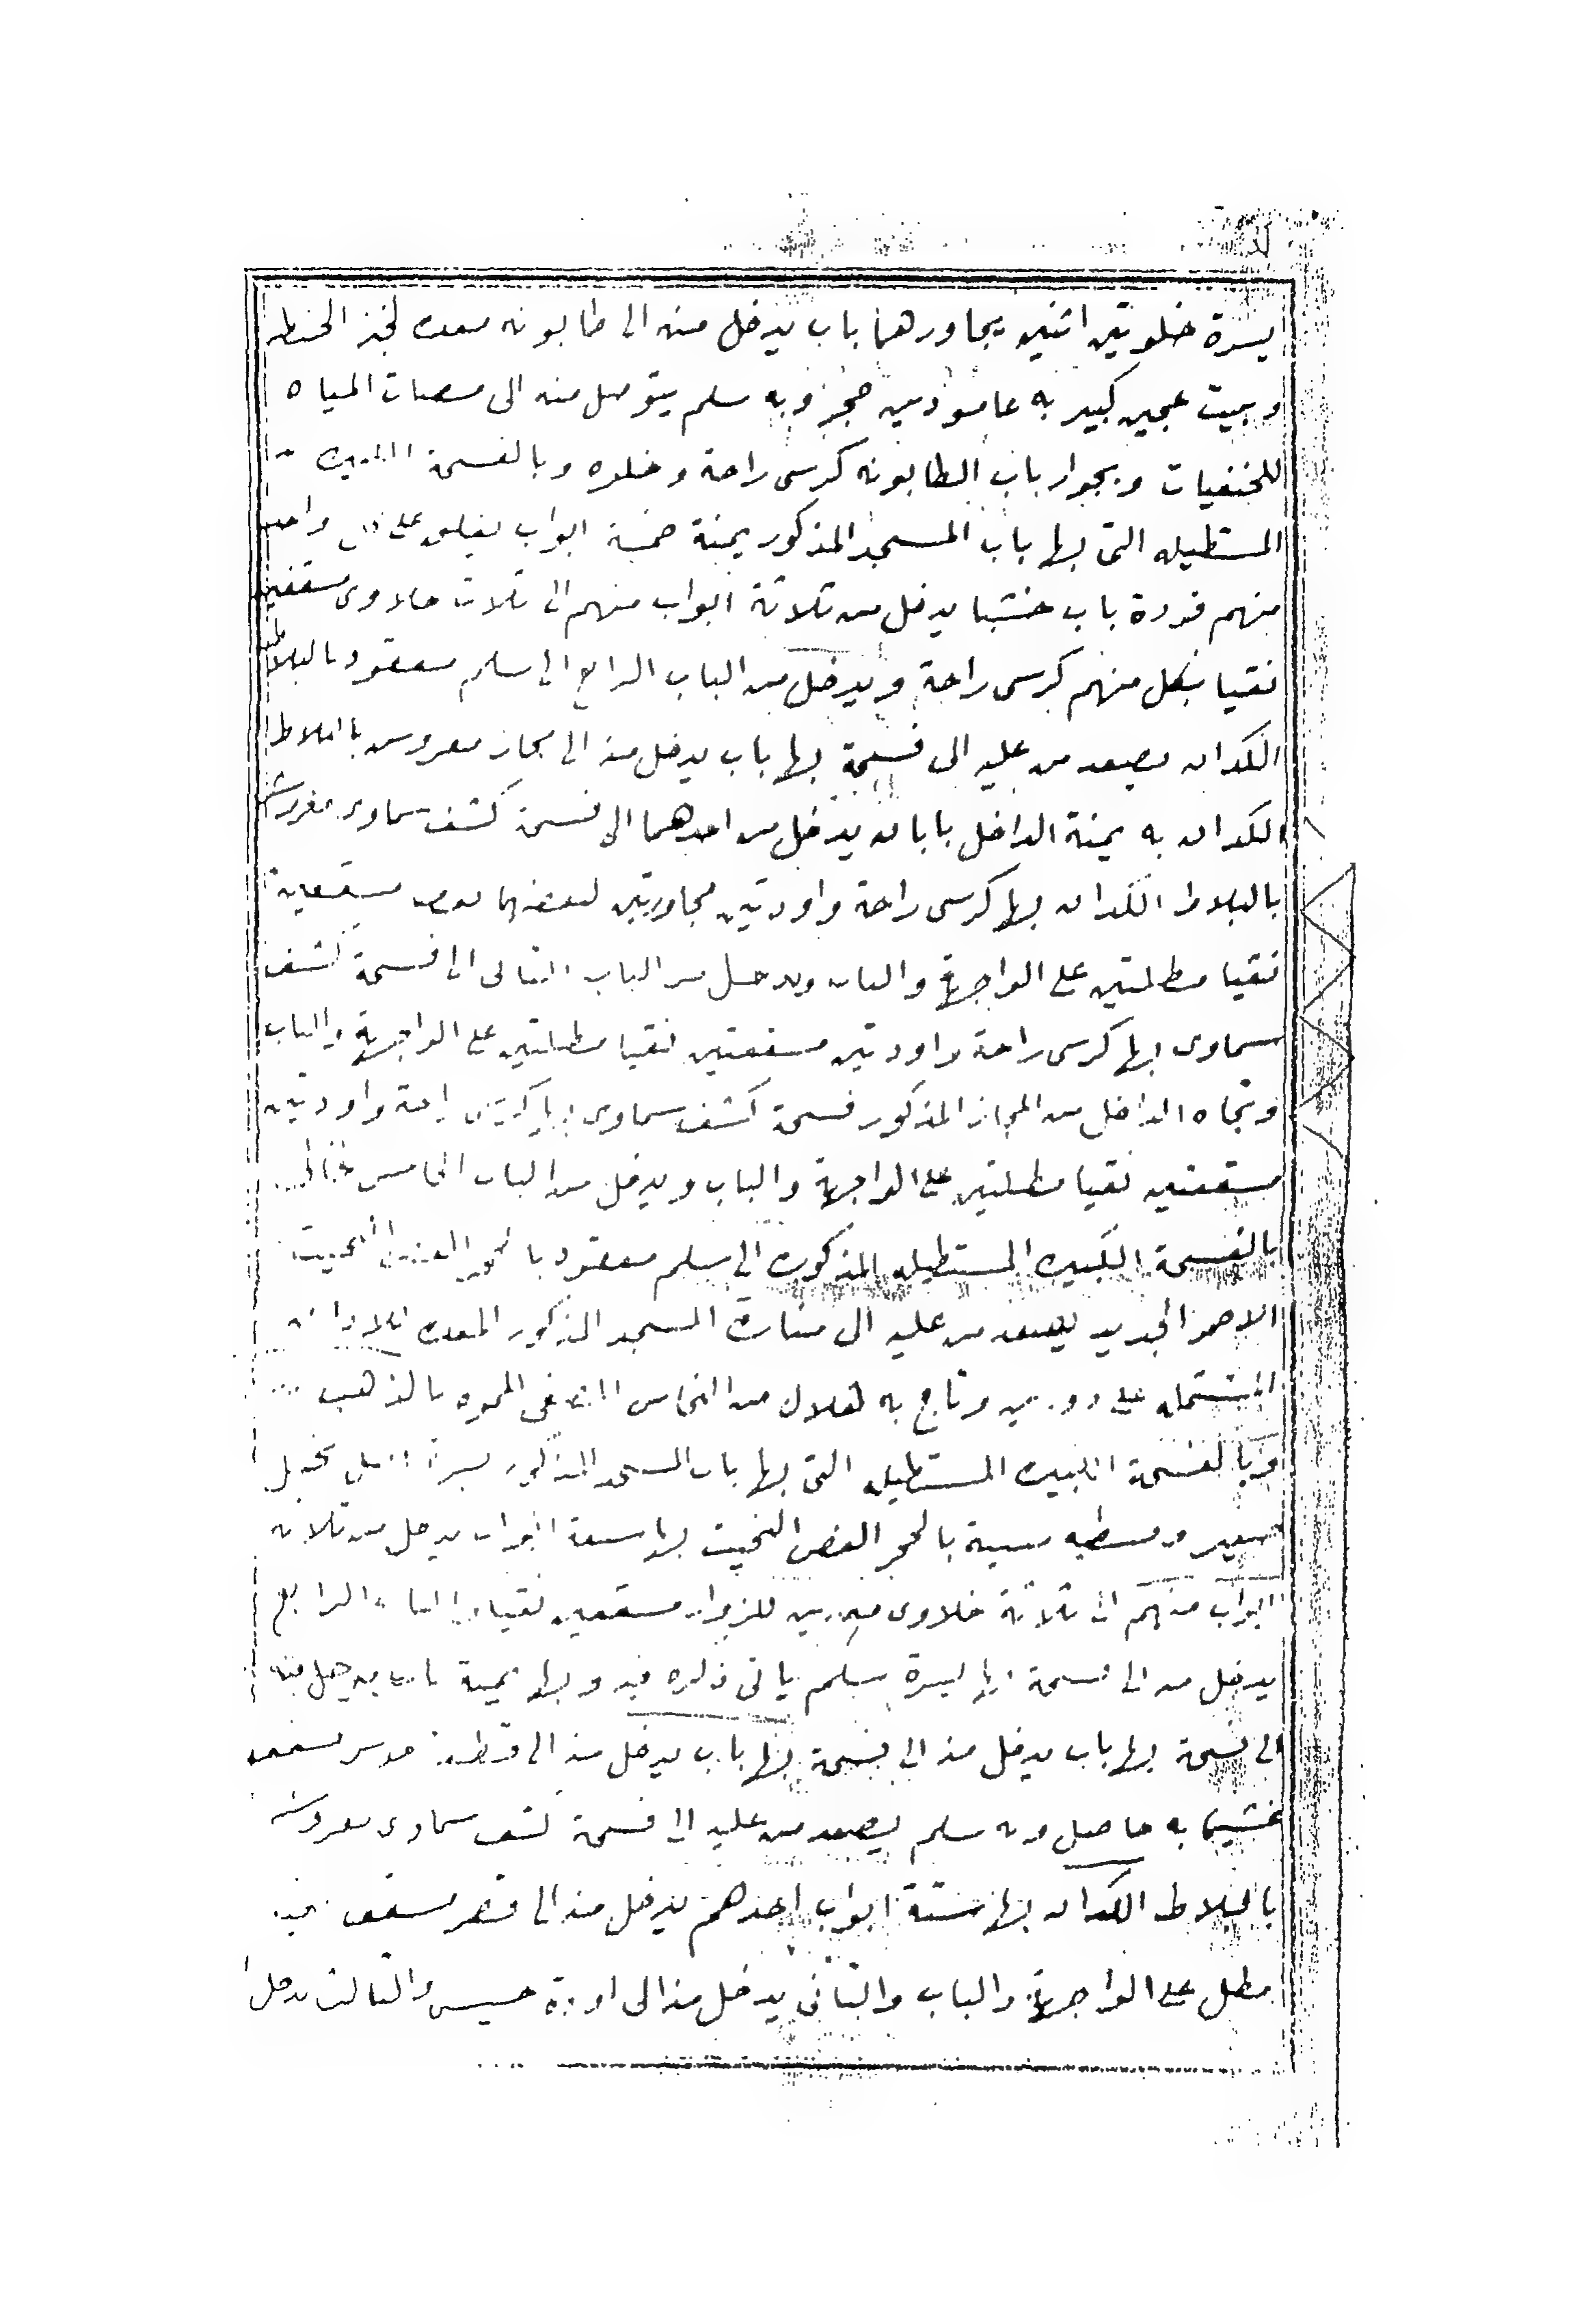 يسرة خلوتين اثنين يجاورهما باب يدخل منه الى طابونه معده لخبز الحنطه
وبيت عجين كبير به عامودين حجر وبه سلم يتوصل منه الى مصبات المياه
للحنفيات وبجوار باب الطابونه كرسى راحة وخلوه وبالفسحة الكبيره
المستطيله التى بها باب المسجد المذكور يمنة خمسة ابواب يغلق على كل واحد
منهم فردة باب خشبا يدخل من ثلاثة ابواب منهم الى ثلاث خلاوى مسقفين
نقيا بكل منهم كرسى راحة ويدخل من الباب الرابع الى سلم معقود بالبلاط
الكدان يصعد من عليه الى فسحة بها باب يدخل منه الى مجاز مفروش بالبلاط
الكدان به يمنة الداخل بابان يدخل من احدهما الى فسحة كشف سماوى مفروشه
بالبلاط الكدان بها كرسى راحة واودتين مجاورتين لبعضهما بعض مسقفين
نقيا مطلتين على الواجهة والباب ويدخل من الباب الثانى الى فسحة كشف
سماوى بها كرسى راحة واودتين مسقفتين نقيا مطلتين على الواجهة والباب
وتجاه الداخل من المجاز المذكور فسحة كشف سماوى بها كرسى راحة واودتين
مسقفتين نقيا مطلتين على الواجهة والباب ويدخل من الباب الخامس
بالفسحة الكبيره المستطيله المذكوره الى سلم معقود بالحجر الفص النحيت
الاحمر الجديد يصعد من عليه الى منارة المسجد المذكور المعده للاذان
المشتمله على دورين وتاج به هلال من النحاس الاصفر المموه بالذهب
وبالفسحة الكبيره المستطيله التى بها باب المسجد المذكور يسرة نخيل
صغير ومسطبه مبنية بالحجر الفص النحيت بها سبعة ابواب يدخل من ثلاثه
ابواب منهم الى ثلاثة خلاوى للزوار مسقفين نقيا والباب الرابع
يدخل منه الى فسحة بها يسرة سلم ياتى ذكره فيه وبها يمنة باب يدخل منه
الى فسحة بها باب يدخل منه الى فسحة بها باب يدخل منه الى مسقف
خشبا به حاصل وبه سلم يصعد من عليه الى فسحة كشف سماوى مفروشه
بالبلاط الكدان بها ستة ابواب احدهم يدخل منه الى قصر مسقف
مطل على الواجهة والباب والثانى يدخل منه الى اودة حبيس والثالث يدخل